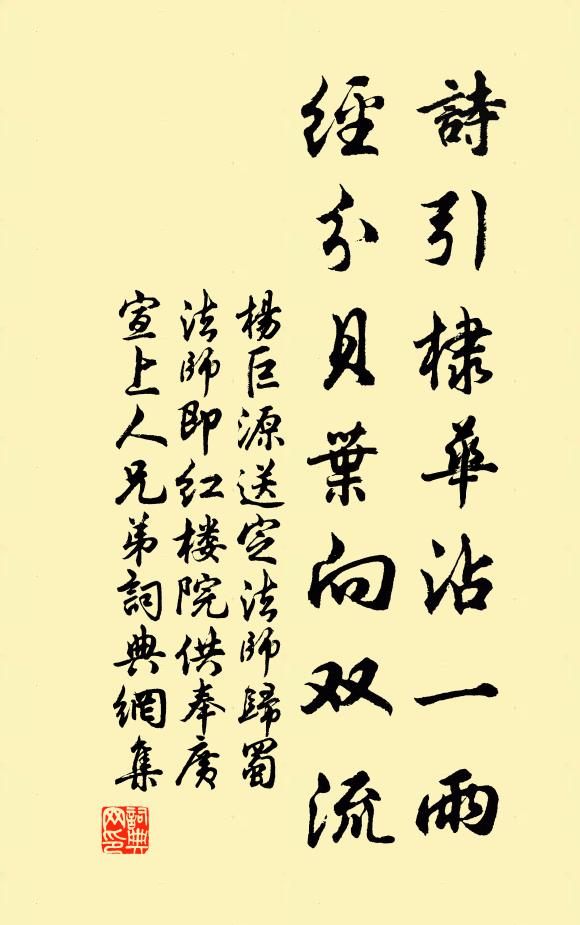 詩引棣華沾一雨
經分貝葉向双流
楊巨源送定法師歸蜀
法師即红楼院供奉廣
宣上人兄弟詞典網集
詞典
网印